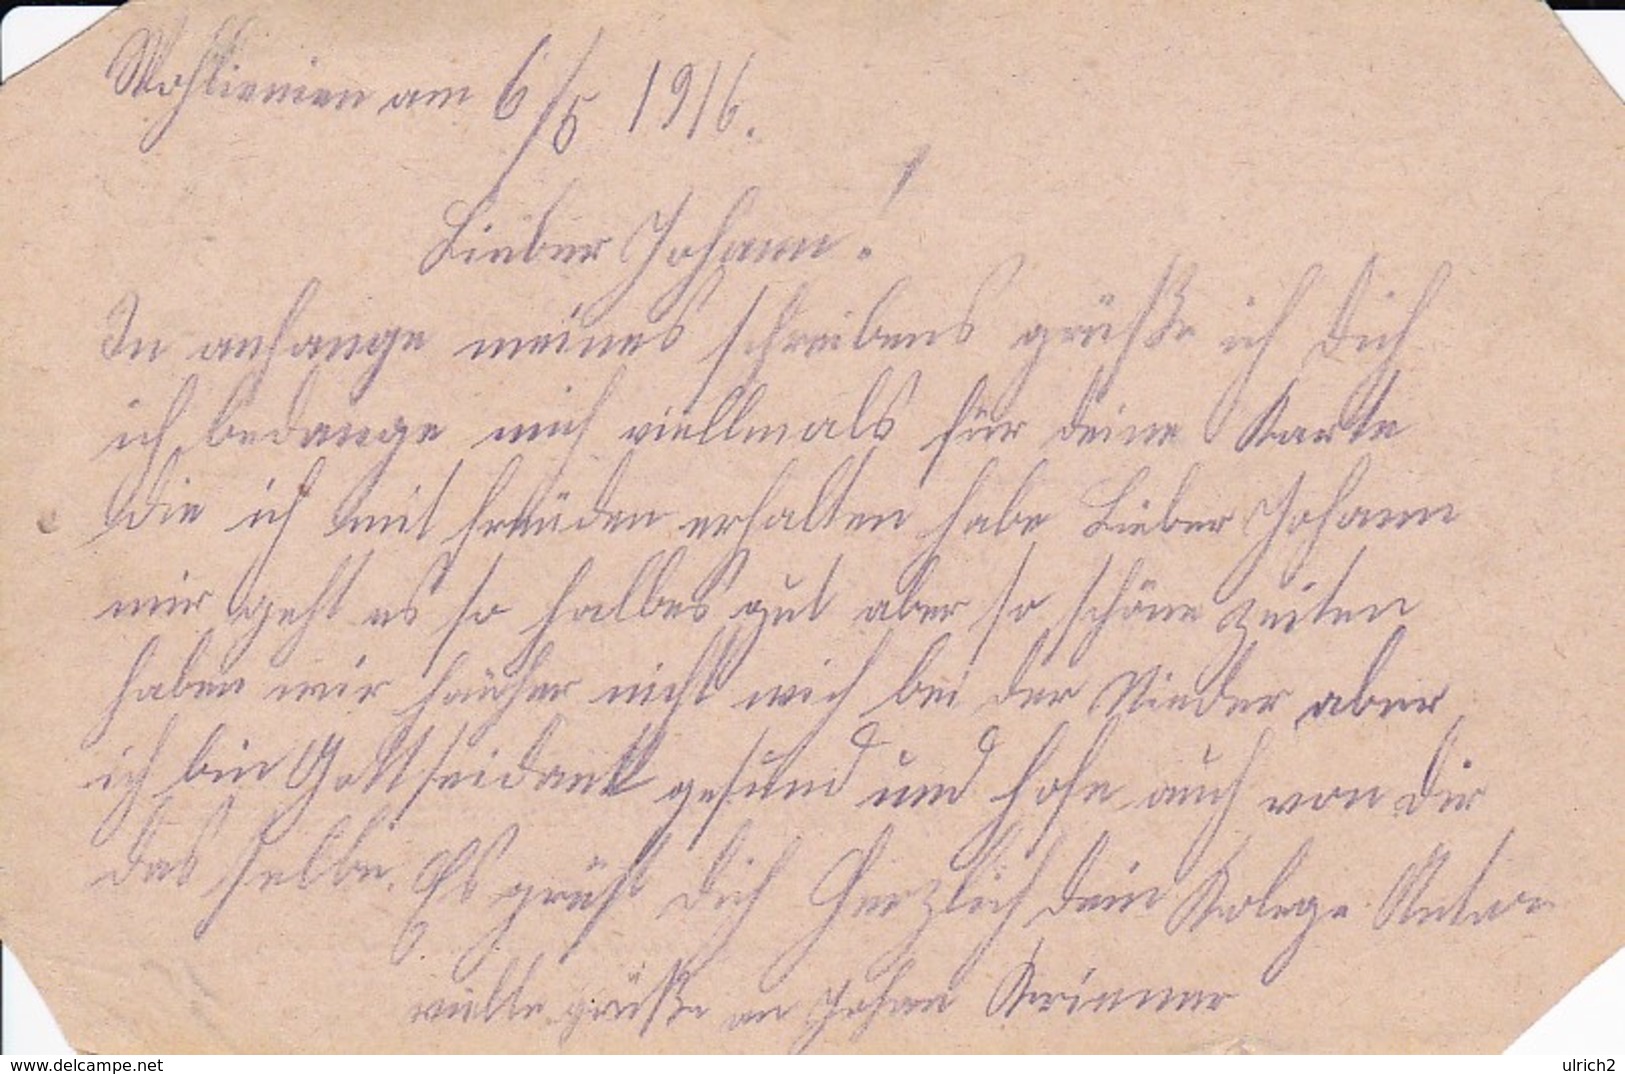 Wohlienien am 6/5 1916.
Lieber Johann!
In anfange meines schreibens grüße ich Dich
ich bedange mich viellmals für deine Karte
die ich mit freuden erhalten habe Lieber Johann
mir geht es so halbes gut aber so schöne zeiten
haben wir früher nicht wich bei der Nieder aber
ich bin Gottseidank gesund und hofe auch von Dir
das selbe. Es grüßt Dich Herzlich dein Kolege Anton
vielle grüße an Johan
delcampe.net
ulrich2